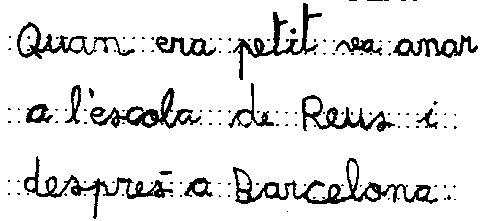 Quan era petit va anar
a l'escola de Reus i
després a Barcelona.